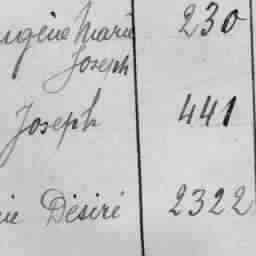 Eugène Marie 230
Joseph
Joseph 441
ie Désiré 2322